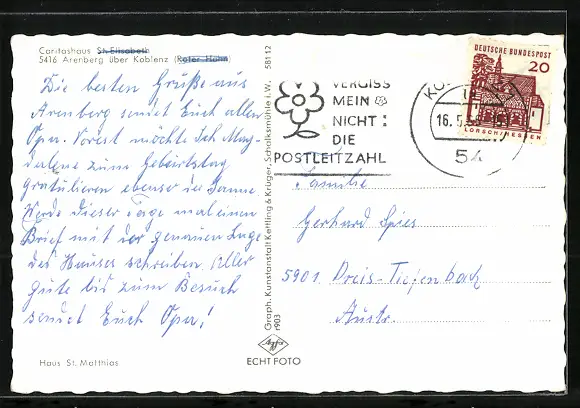 Caritashaus St. Elisabeth
5416 Arenberg über Koblenz (Roter Hahn)
Die besten Grüße aus
Arenberg sendet Euch allen
Opa. Vorest möchte ich Mag-
dalene zum Geburtstag
gratulieren ebenso der Hanne.
Werde dieser Tage mal einen
Brief mit der genauen Lage
des Hauses schreiben. Alles
gute bis zum Besuch
sendet Euch Opa!
Haus St. Matthias
Graph. Kunstanstalt Kettling & Krüger, Schalksmühle i. W. 581 12
r903
Agfa
ECHT FOTO
VERGISS
MEIN
NICHT:
DIE
POSTLEITZAHL
16.5.
54
DEUTSCHE BUNDESPOST
20
LORSCH/HESSEN
Familie
Gerhard Spies
5901 Dreis-Tiefenbach